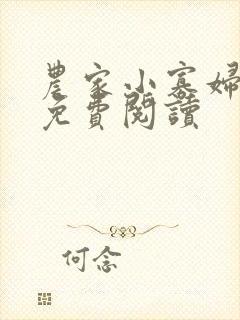 農家小寡婦
免費閱讀
何念